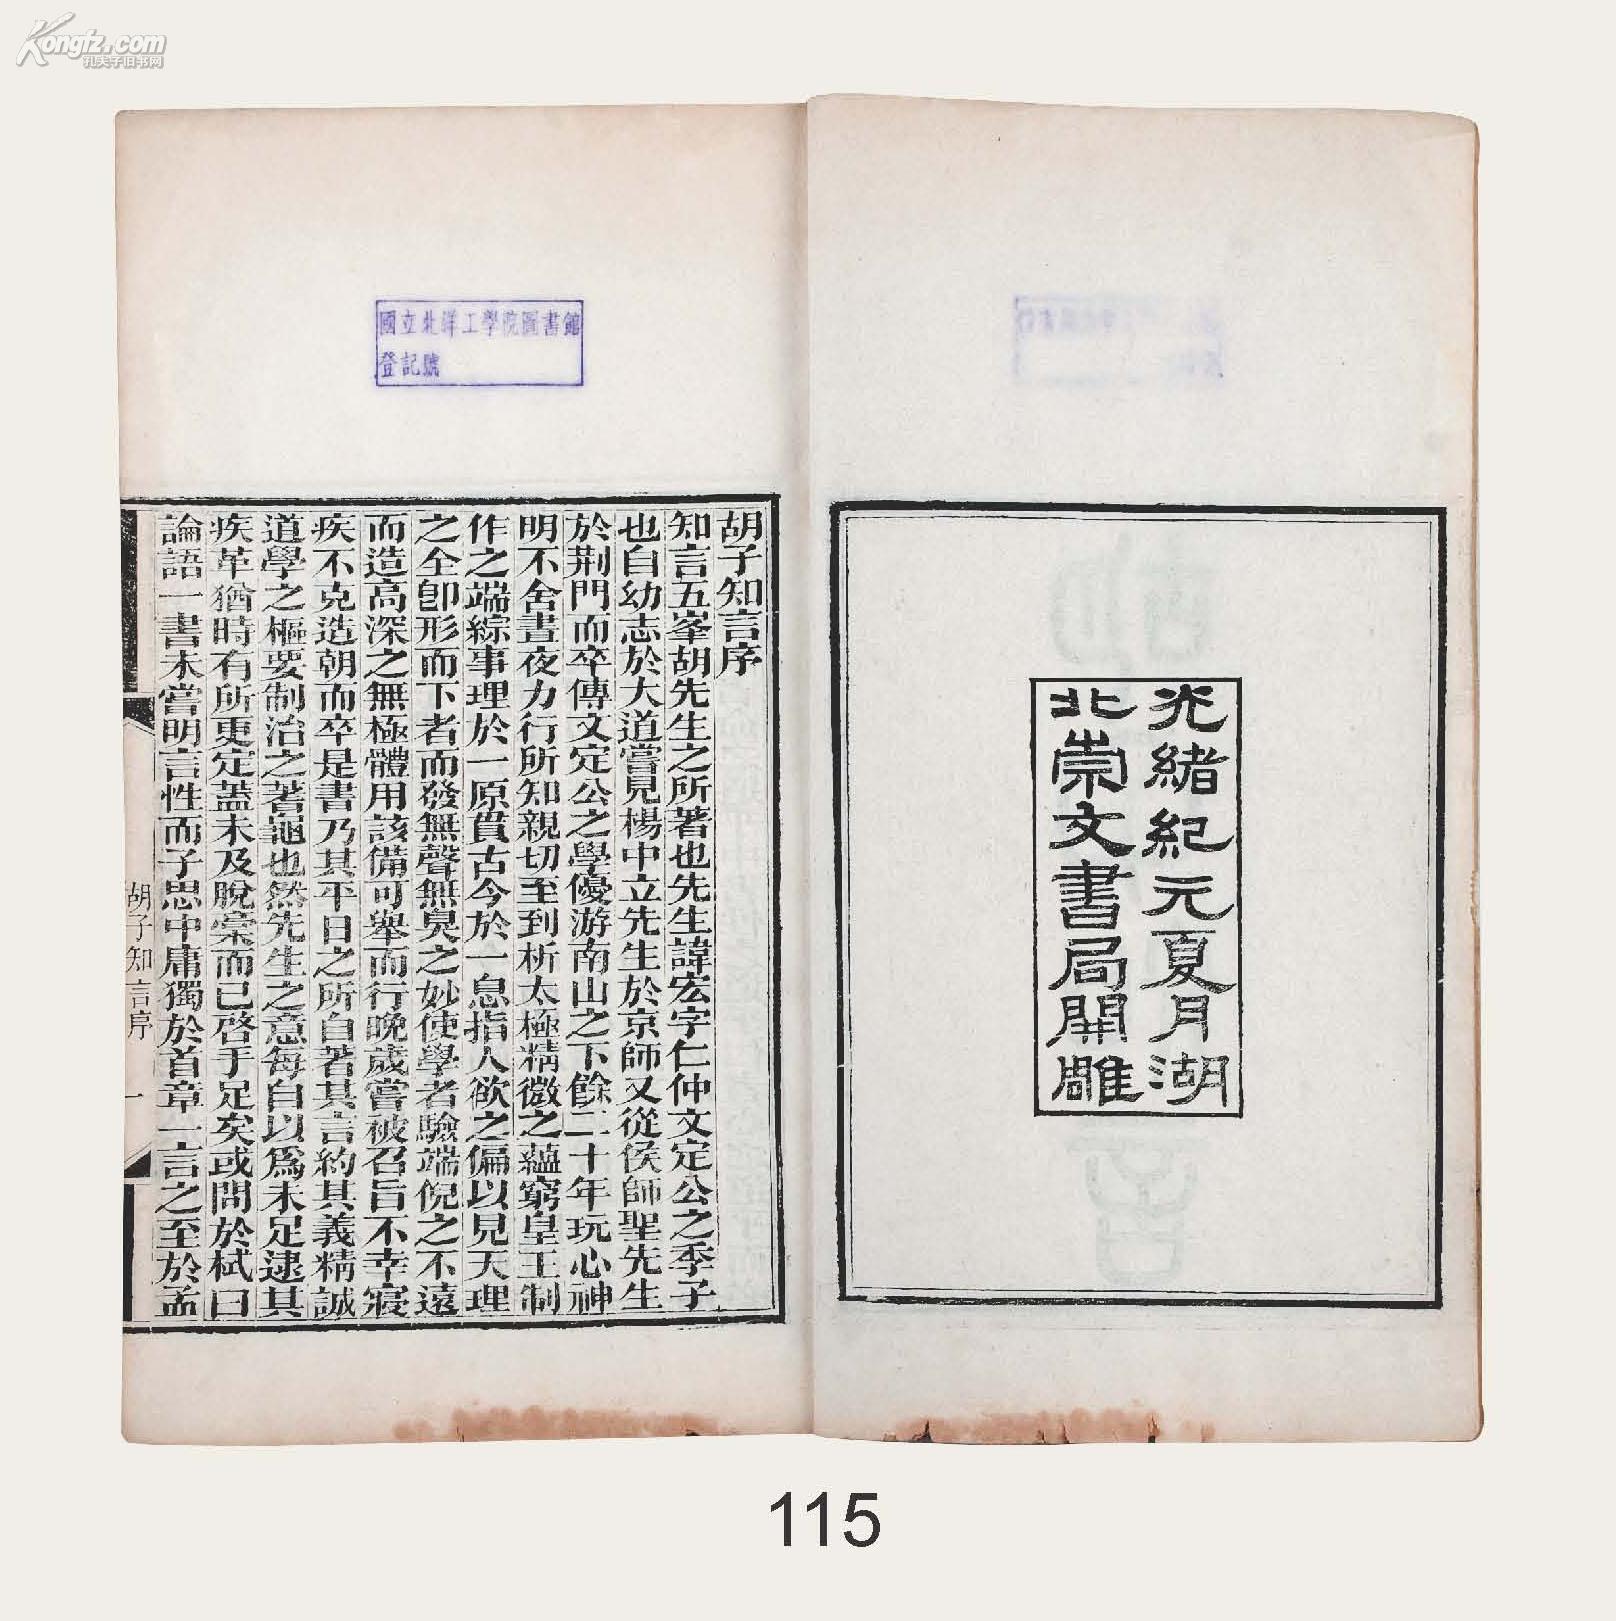 Kongfz.com
孔夫子旧书网
光緒紀元夏月湖
北崇文書局開雕
國立北洋工學院圖書館
登記號
胡子知言序
知言五峯胡先生之所著也先生諱宏字仁仲文定公之季子
也自幼志於大道嘗見楊中立先生於京師又從侯師聖先生
於荆門而卒傳文定公之學優游南山之下餘二十年玩心神
明不舍晝夜力行所知親切至到析太極精微之蘊窮皇王制
作之端綜事理於一原貫古今於一息指人欲之偏以見天理
之全卽形而下者而發無聲無臭之妙使學者驗端倪之不遠
而造高深之無極體用該備可舉而行晚歲嘗被召旨不幸寢
疾不克造朝而卒是書乃其平日之所自著其言約其義精誠
道學之樞要制治之蓍龜也然先生之意每自以爲未足逮其
疾革猶時有所更定蓋未及脫稾而已啓手足矣或問於栻曰
論語一書未嘗明言性而子思中庸獨於首章一言之至於孟
胡子知言序
一
115